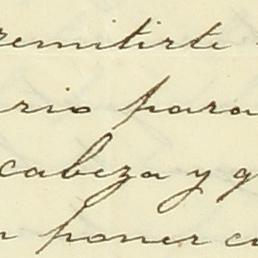 remitirte
rio para
cabeza y q
n poner co